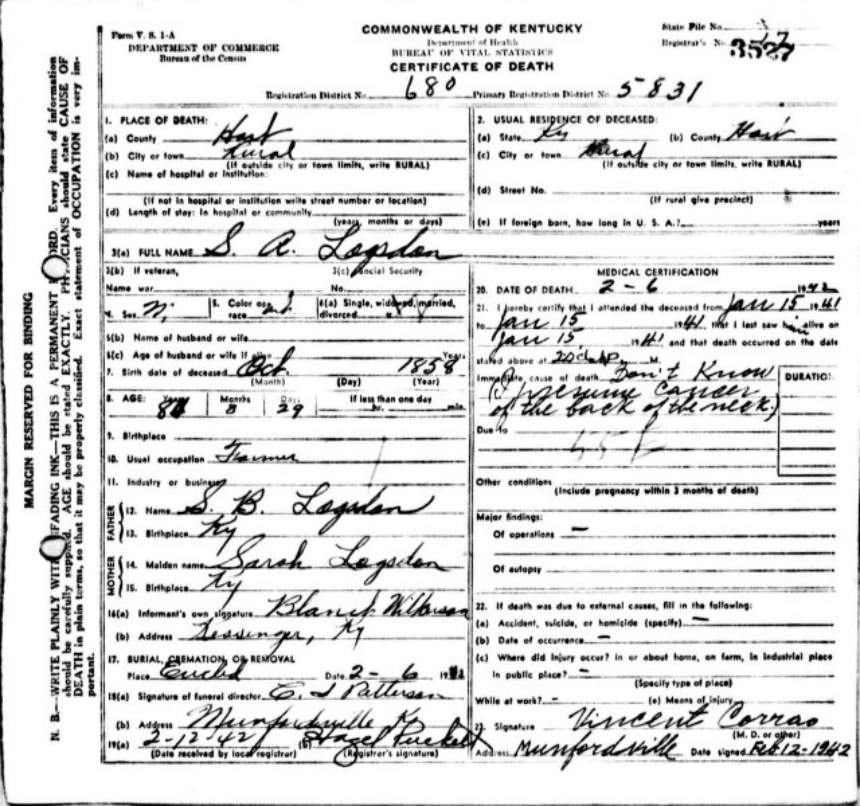 Form V. S. 1-A
DEPARTMENT OF COMMERCE
Bureau of the Census
COMMONWEALTH OF KENTUCKY
Department of Health
BUREAU OF VITAL STATISTICS
CERTIFICATE OF DEATH
State File No.
Registrar's No.
Registration District No. 680 Primary Registration District No. 5831
MARGIN RESERVED FOR BINDING
N. B.—WRITE PLAINLY WITH FADING INK—THIS IS A PERMANENT RECORD. Every item of information
should be carefully supplied. AGE should be stated EXACTLY. PHYSICIANS should state CAUSE OF
DEATH in plain terms, so that it may be properly classified. Exact statement of OCCUPATION is very im-
portant.
1. PLACE OF DEATH:
(a) County Hart
(b) City or town Rural
(If outside city or town limits, write RURAL)
(c) Name of hospital or institution:
(If not in hospital or institution write street number or location)
(d) Length of stay: In hospital or community
(years, months or days)
2. USUAL RESIDENCE OF DECEASED:
(a) State Ky (b) County Hart
(c) City or town Rural
(If outside city or town limits, write RURAL)
(d) Street No.
(If rural give precinct)
(e) If foreign born, how long in U. S. A.? years
3(a) FULL NAME S. A. Logsdon
3(b) If veteran, 3(c) Social Security
Name war No.
4. Sex 5. Color or race 6(a) Single, widowed, married, divorced
6(b) Name of husband or wife
6(c) Age of husband or wife if alive Years
7. Birth date of deceased Oct. 1858
(Month) (Day) (Year)
8. AGE: Years Months Days If less than one day
8 29 hr. min.
9. Birthplace
10. Usual occupation Farmer
11. Industry or business
FATHER
12. Name S. B. Logsdon
13. Birthplace Ky
MOTHER
14. Maiden name Sarah Logsdon
15. Birthplace Ky
16(a) Informant's own signature Blanch Wilkerson
(b) Address Ky
17. BURIAL, CREMATION, OR REMOVAL
Place Date 2-6 19
18(a) Signature of funeral director Patterson
(b) Address Munfordville Ky
19(a) 2-12-42 (b) Hazel Puckett
(Date received by local registrar) (Registrar's signature)
MEDICAL CERTIFICATION
20. DATE OF DEATH 2-6 1942
21. I hereby certify that I attended the deceased from Jan 15 1941
to Jan 15 1941, that I last saw him alive on
Jan 15 1941 and that death occurred on the date
stated above at M.
Immediate cause of death Don't Know
(Presume Cancer
of the back of the neck)
DURATION
Due to
Other conditions
(Include pregnancy within 3 months of death)
Major findings:
Of operations —
Of autopsy
22. If death was due to external causes, fill in the following:
(a) Accident, suicide, or homicide (specify) —
(b) Date of occurrence —
(c) Where did injury occur? in or about home, on farm, in industrial place
in public place? —
(Specify type of place)
While at work? - (e) Means of injury
23. Signature Vincent Corrao
(M. D. or other)
Address Munfordville Date signed Feb 12-1942